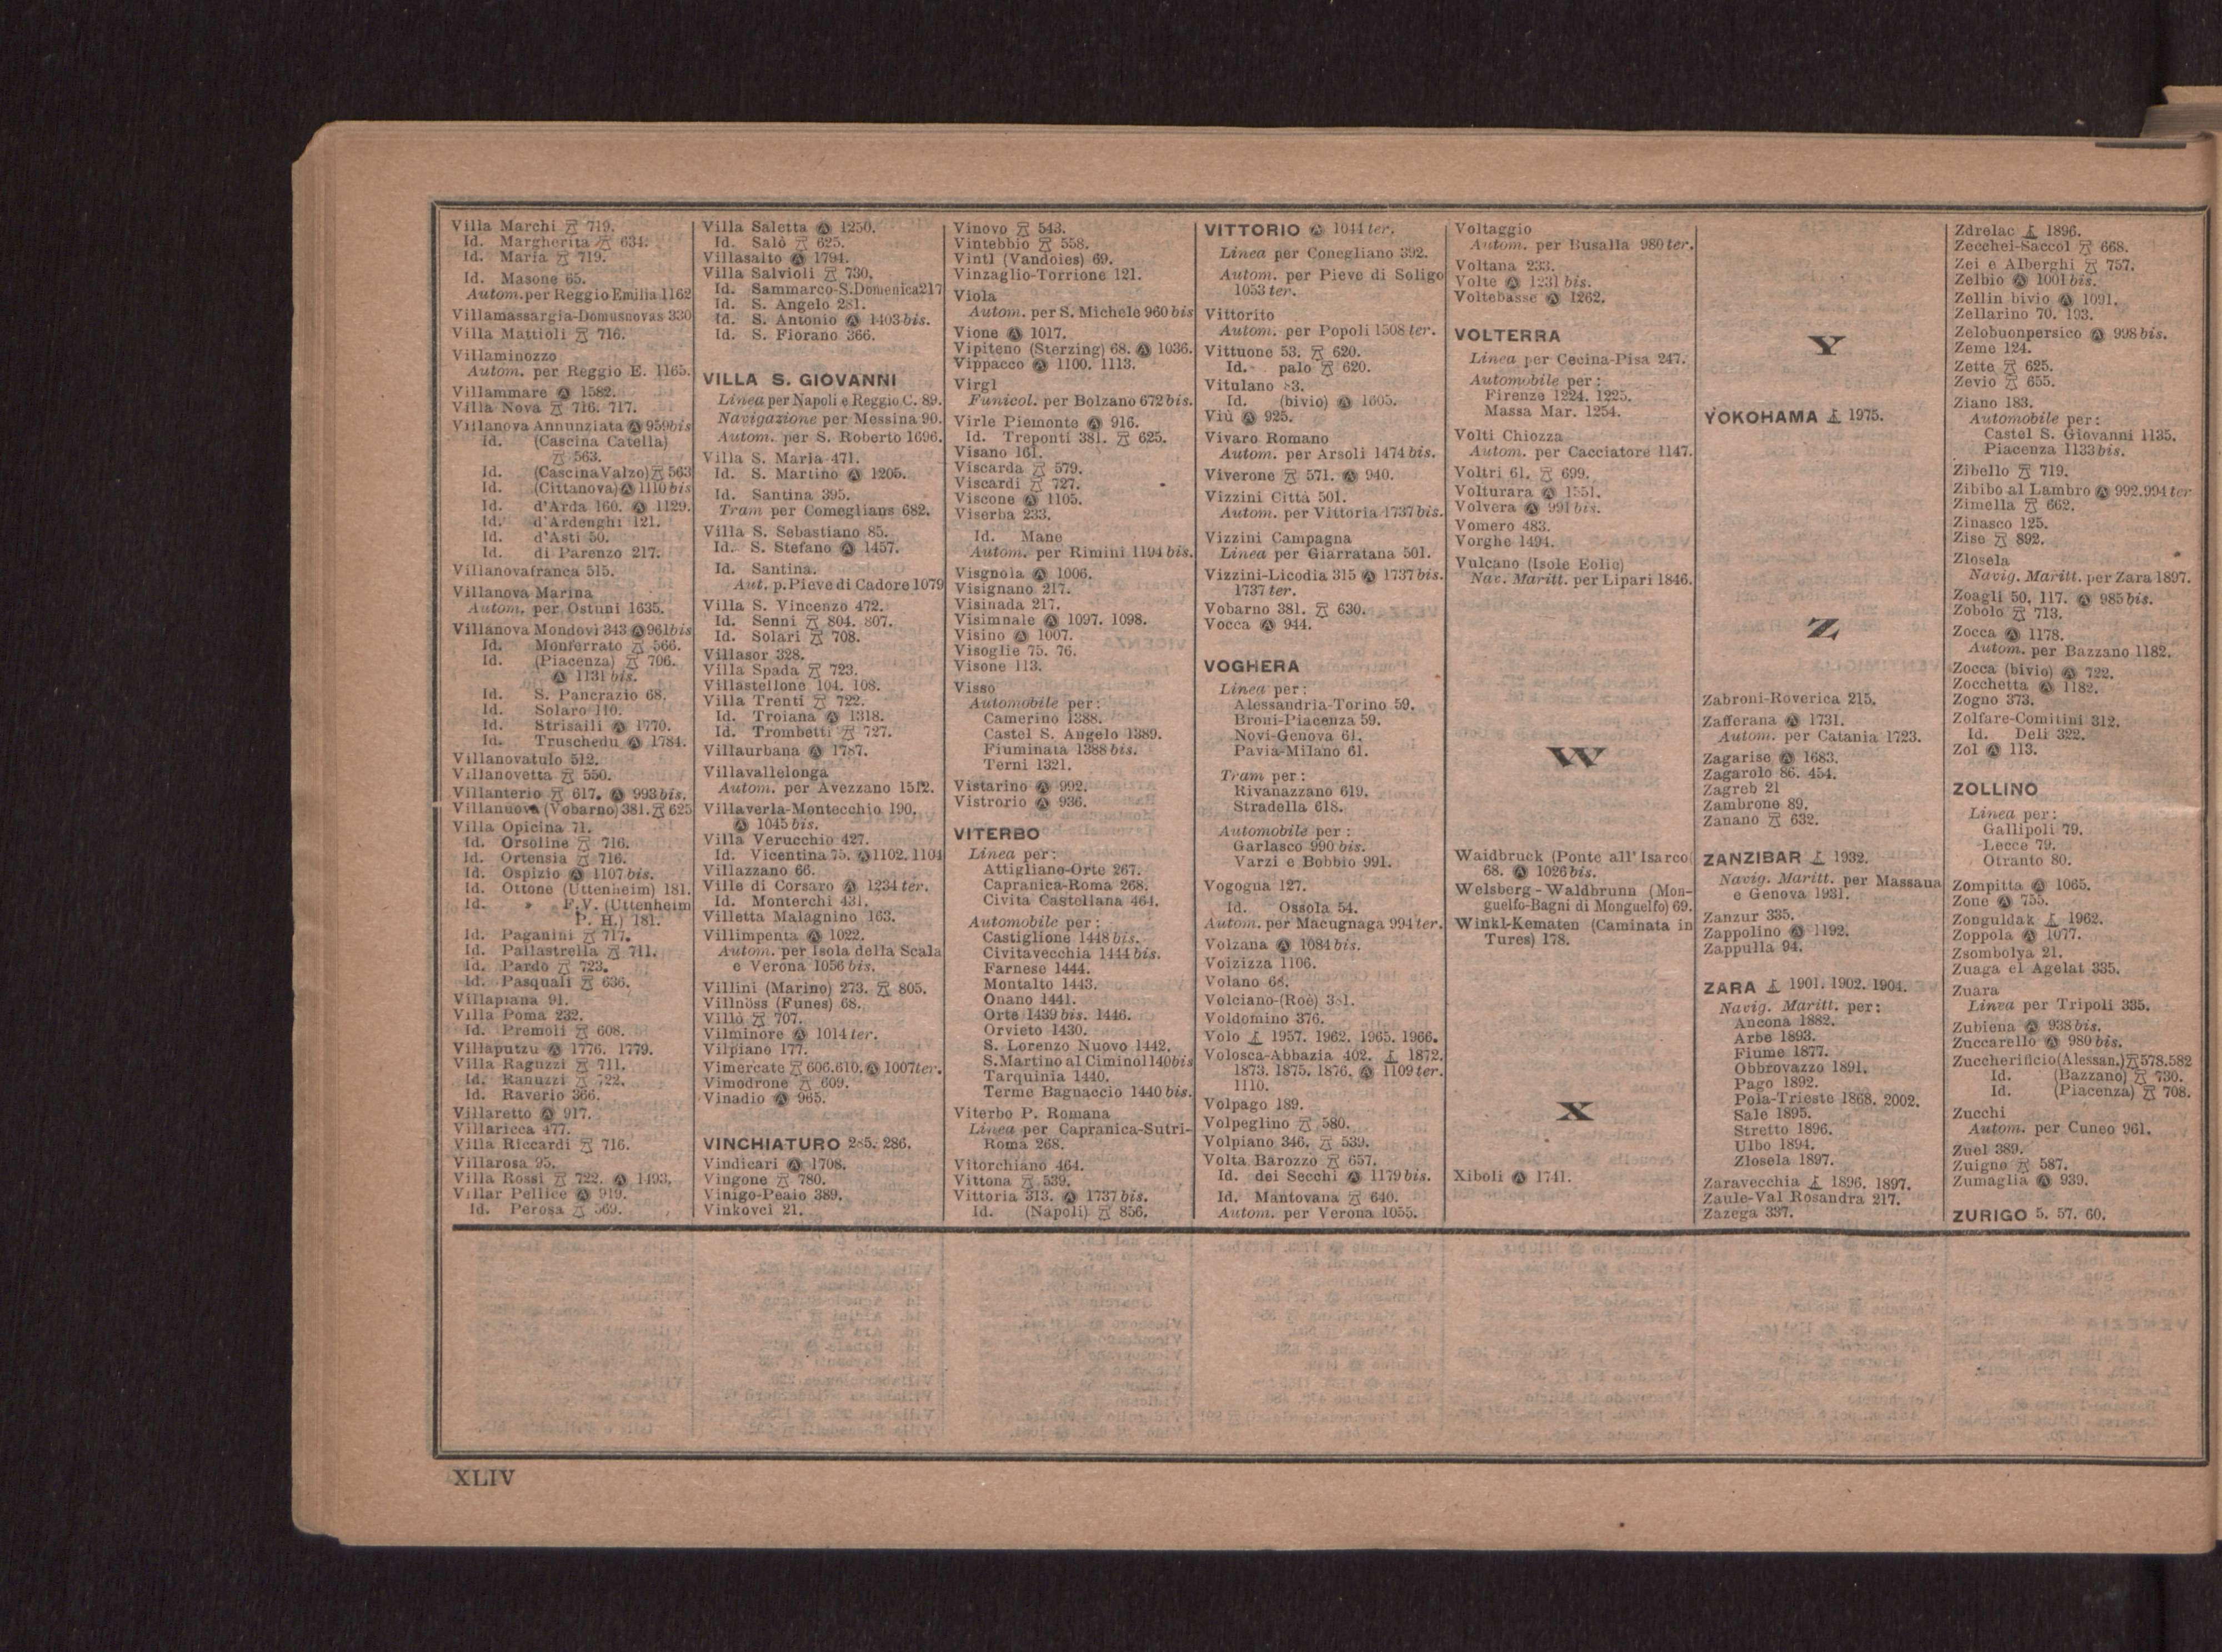 Villa Marchi 719.
Id. Margherita 634.
Id. Maria 719.
Id. Masone 65.
Autom. per Reggio Emilia 1162
Villamassargia-Domusnovas 330
Villa Mattioli 716.
Villaminozzo
Autom. per Reggio E. 1165.
Villammare Ⓐ 1582.
Villa Nova 716. 717.
Villanova Annunziata Ⓐ 959bis
Id. (Cascina Catella)
563.
Id. (Cascina Valzo) 563
Id. (Cittanova) Ⓐ 1110 bis
Id. d'Arda 160. Ⓐ 1129.
Id. d'Ardenghi 121.
Id. d'Asti 50.
Id. di Parenzo 217.
Villanovafranca 515.
Villanova Marina
Autom. per Ostuni 1635.
Villanova Mondovi 343 Ⓐ 961bis
Id. Monferrato 566.
Id. (Piacenza) 706.
Ⓐ 1131 bis.
Id. S. Pancrazio 68.
Id. Solaro 110.
Id. Strisaili Ⓐ 1770.
Id. Truschedu Ⓐ 1784.
Villanovatulo 512.
Villanovetta 550.
Villanterio 617. Ⓐ 993bis.
Villanuova (Vobarno) 381. 625
Villa Opicina 71.
Id. Orsoline 716.
Id. Ortensia 716.
Id. Ospizio Ⓐ 1107 bis.
Id. Ottone (Uttenheim) 181.
Id. » F.V. (Uttenheim
P. H.) 181.
Id. Paganini 717.
Id. Pallastrella 711.
Id. Pardo 723.
Id. Pasquali 636.
Villapiana 91.
Villa Poma 232.
Id. Premoli 608.
Villaputzu Ⓐ 1776. 1779.
Villa Raguzzi 711.
Id. Ranuzzi 722.
Id. Raverio 366.
Villaretto Ⓐ 917.
Villaricca 477.
Villa Riccardi 716.
Villarosa 95.
Villa Rossi 722. Ⓐ 1493.
Villar Pellice Ⓐ 919.
Id. Perosa 569.
Villa Saletta Ⓐ 1250.
Id. Salò 625.
Villasalto Ⓐ 1794.
Villa Salvioli 730.
Id. Sammarco-S.Domenica 217
Id. S. Angelo 281.
Id. S. Antonio Ⓐ 1403 bis.
Id. S. Fiorano 366.
VILLA S. GIOVANNI
Linea per Napoli e Reggio C. 89.
Navigazione per Messina 90.
Autom. per S. Roberto 1696.
Villa S. Maria 471.
Id. S. Martino Ⓐ 1205.
Id. Santina 395.
Tram per Comeglians 682.
Villa S. Sebastiano 85.
Id. S. Stefano Ⓐ 1457.
Id. Santina.
Aut. p. Pieve di Cadore 1079
Villa S. Vincenzo 472.
Id. Senni 804. 807.
Id. Solari 708.
Villasor 328.
Villa Spada 723.
Villastellone 104. 108.
Villa Trenti 722.
Id. Troiana Ⓐ 1318.
Id. Trombetti 727.
Villaurbana Ⓐ 1787.
Villavallelonga
Autom. per Avezzano 1512.
Villaverla-Montecchio 190.
Ⓐ 1045 bis.
Villa Verucchio 427.
Id. Vicentina 75. Ⓐ 1102. 1104
Villazzano 66.
Ville di Corsaro Ⓐ 1234 ter.
Id. Monterchi 431.
Villetta Malagnino 163.
Villimpenta Ⓐ 1022.
Autom. per Isola della Scala
e Verona 1056 bis.
Villini (Marino) 273. 805.
Villnöss (Funes) 68.
Villò 707.
Vilminore Ⓐ 1014 ter.
Vilpiano 177.
Vimercate 606.610. Ⓐ 1007ter.
Vimodrone 609.
Vinadio Ⓐ 965.
VINCHIATURO 285. 286.
Vindicari Ⓐ 1708.
Vingone 780.
Vinigo-Peaio 389.
Vinkovci 21.
Vinovo 543.
Vintebbio 558.
Vintl (Vandoies) 69.
Vinzaglio-Torrione 121.
Viola
Autom. per S. Michele 960 bis
Vione Ⓐ 1017.
Vipiteno (Sterzing) 68. Ⓐ 1036.
Vippacco Ⓐ 1100. 1113.
Virgl
Funicol. per Bolzano 672 bis.
Virle Piemonte Ⓐ 916.
Id. Treponti 381. 625.
Visano 161.
Viscarda 579.
Viscardi 727.
Viscone Ⓐ 1105.
Viserba 233.
Id. Mane
Autom. per Rimini 1194 bis.
Visgnola Ⓐ 1006.
Visignano 217.
Visinada 217.
Visimnale Ⓐ 1097. 1098.
Visino Ⓐ 1007.
Visoglie 75. 76.
Visone 113.
Visso
Automobile per:
Camerino 1388.
Castel S. Angelo 1389.
Fiuminata 1388 bis.
Terni 1321.
Vistarino Ⓐ 992.
Vistrorio Ⓐ 936.
VITERBO
Linea per:
Attigliano-Orte 267.
Capranica-Roma 268.
Civita Castellana 464.
Automobile per:
Castiglione 1448 bis.
Civitavecchia 1444 bis.
Farnese 1444.
Montalto 1443.
Onano 1441.
Orte 1439 bis. 1446.
Orvieto 1430.
S. Lorenzo Nuovo 1442.
S. Martino al Cimino 1140bis
Tarquinia 1440.
Terme Bagnaccio 1440 bis.
Viterbo P. Romana
Linea per Capranica-Sutri-
Roma 268.
Vitorchiano 464.
Vittona 539.
Vittoria 313. Ⓐ 1737 bis.
Id. (Napoli) 856.
VITTORIO Ⓐ 1044 ter.
Linea per Conegliano 392.
Autom. per Pieve di Soligo
1053 ter.
Vittorito
Autom. per Popoli 1508 ter.
Vittuone 53. 620.
Id. palo 620.
Vitulano 83.
Id. (bivio) Ⓐ 1605.
Viù Ⓐ 925.
Vivaro Romano
Autom. per Arsoli 1474 bis.
Viverone 571. Ⓐ 940.
Vizzini Città 501.
Autom. per Vittoria 1737 bis.
Vizzini Campagna
Linea per Giarratana 501.
Vizzini-Licodia 315 Ⓐ 1737 bis.
1737 ter.
Vobarno 381. 630.
Vocca Ⓐ 944.
VOGHERA
Linea per:
Alessandria-Torino 59.
Broni-Piacenza 59.
Novi-Genova 61.
Pavia-Milano 61.
Tram per:
Rivanazzano 619.
Stradella 618.
Automobile per:
Garlasco 990 bis.
Varzi e Bobbio 991.
Vogogna 127.
Id. Ossola 54.
Autom. per Macugnaga 994 ter.
Volzana Ⓐ 1084 bis.
Voizizza 1106.
Volano 68.
Volciano-(Roè) 381.
Voldomino 376.
Volo 1957. 1962. 1965. 1966.
Volosca-Abbazia 402. 1872.
1873. 1875. 1876. Ⓐ 1109 ter.
1110.
Volpago 189.
Volpeglino 580.
Volpiano 346. 539.
Volta Barozzo 657.
Id. dei Secchi Ⓐ 1179 bis.
Id. Mantovana 640.
Autom. per Verona 1055.
Voltaggio
Autom. per Busalla 980 ter.
Voltana 233.
Volte Ⓐ 1231 bis.
Voltebasse Ⓐ 1262.
VOLTERRA
Linea per Cecina-Pisa 247.
Automobile per:
Firenze 1224. 1225.
Massa Mar. 1254.
Volti Chiozza
Autom. per Cacciatore 1147.
Voltri 61. 699.
Volturara Ⓐ 1551.
Volvera Ⓐ 991 bis.
Vomero 483.
Vorghe 1494.
Vulcano (Isole Eolie)
Nav. Maritt. per Lipari 1846.
W
Waidbruck (Ponte all'Isarco)
68. Ⓐ 1026 bis.
Welsberg - Waldbrunn (Mon-
guelfo-Bagni di Monguelfo) 69.
Winkl-Kematen (Caminata in
Tures) 178.
X
Xiboli Ⓐ 1741.
Y
YOKOHAMA 1975.
Z
Zabroni-Roverica 215.
Zafferana Ⓐ 1731.
Autom. per Catania 1723.
Zagarise Ⓐ 1683.
Zagarolo 86. 454.
Zagreb 21
Zambrone 89.
Zanano 632.
ZANZIBAR 1932.
Navig. Maritt. per Massaua
e Genova 1931.
Zanzur 335.
Zappolino Ⓐ 1192.
Zappulla 94.
ZARA 1901. 1902. 1904.
Navig. Maritt. per:
Ancona 1882.
Arbe 1893.
Fiume 1877.
Obbrovazzo 1891.
Pago 1892.
Pola-Trieste 1868. 2002.
Sale 1895.
Stretto 1896.
Ulbo 1894.
Zlosela 1897.
Zaravecchia 1896. 1897.
Zaule-Val Rosandra 217.
Zazega 337.
Zdrelac 1896.
Zecchei-Saccol 668.
Zei e Alberghi 757.
Zelbio Ⓐ 1001 bis.
Zellin bivio Ⓐ 1091.
Zellarino 70. 193.
Zelobuonpersico Ⓐ 998 bis.
Zeme 124.
Zette 625.
Zevio 655.
Ziano 183.
Automobile per:
Castel S. Giovanni 1135.
Piacenza 1133 bis.
Zibello 719.
Zibibo al Lambro Ⓐ 992.994 ter
Zimella 662.
Zinasco 125.
Zise 892.
Zlosela
Navig. Maritt. per Zara 1897.
Zoagli 50. 117. Ⓐ 985 bis.
Zobolo 713.
Zocca Ⓐ 1178.
Autom. per Bazzano 1182.
Zocca (bivio) Ⓐ 722.
Zocchetta Ⓐ 1182.
Zogno 373.
Zolfare-Comitini 312.
Id. Deli 322.
Zol Ⓐ 113.
ZOLLINO
Linea per:
Gallipoli 79.
Lecce 79.
Otranto 80.
Zompitta Ⓐ 1065.
Zone Ⓐ 755.
Zonguldak 1962.
Zoppola Ⓐ 1077.
Zsombolya 21.
Zuaga el Agelat 335.
Zuara
Linea per Tripoli 335.
Zubiena Ⓐ 938 bis.
Zuccarello Ⓐ 980 bis.
Zuccherificio (Alessan.) 578.582
Id. (Bazzano) 730.
Id. (Piacenza) 708.
Zucchi
Autom. per Cuneo 961.
Zuel 389.
Zuigno 587.
Zumaglia Ⓐ 939.
ZURIGO 5. 57. 60.
XLIV